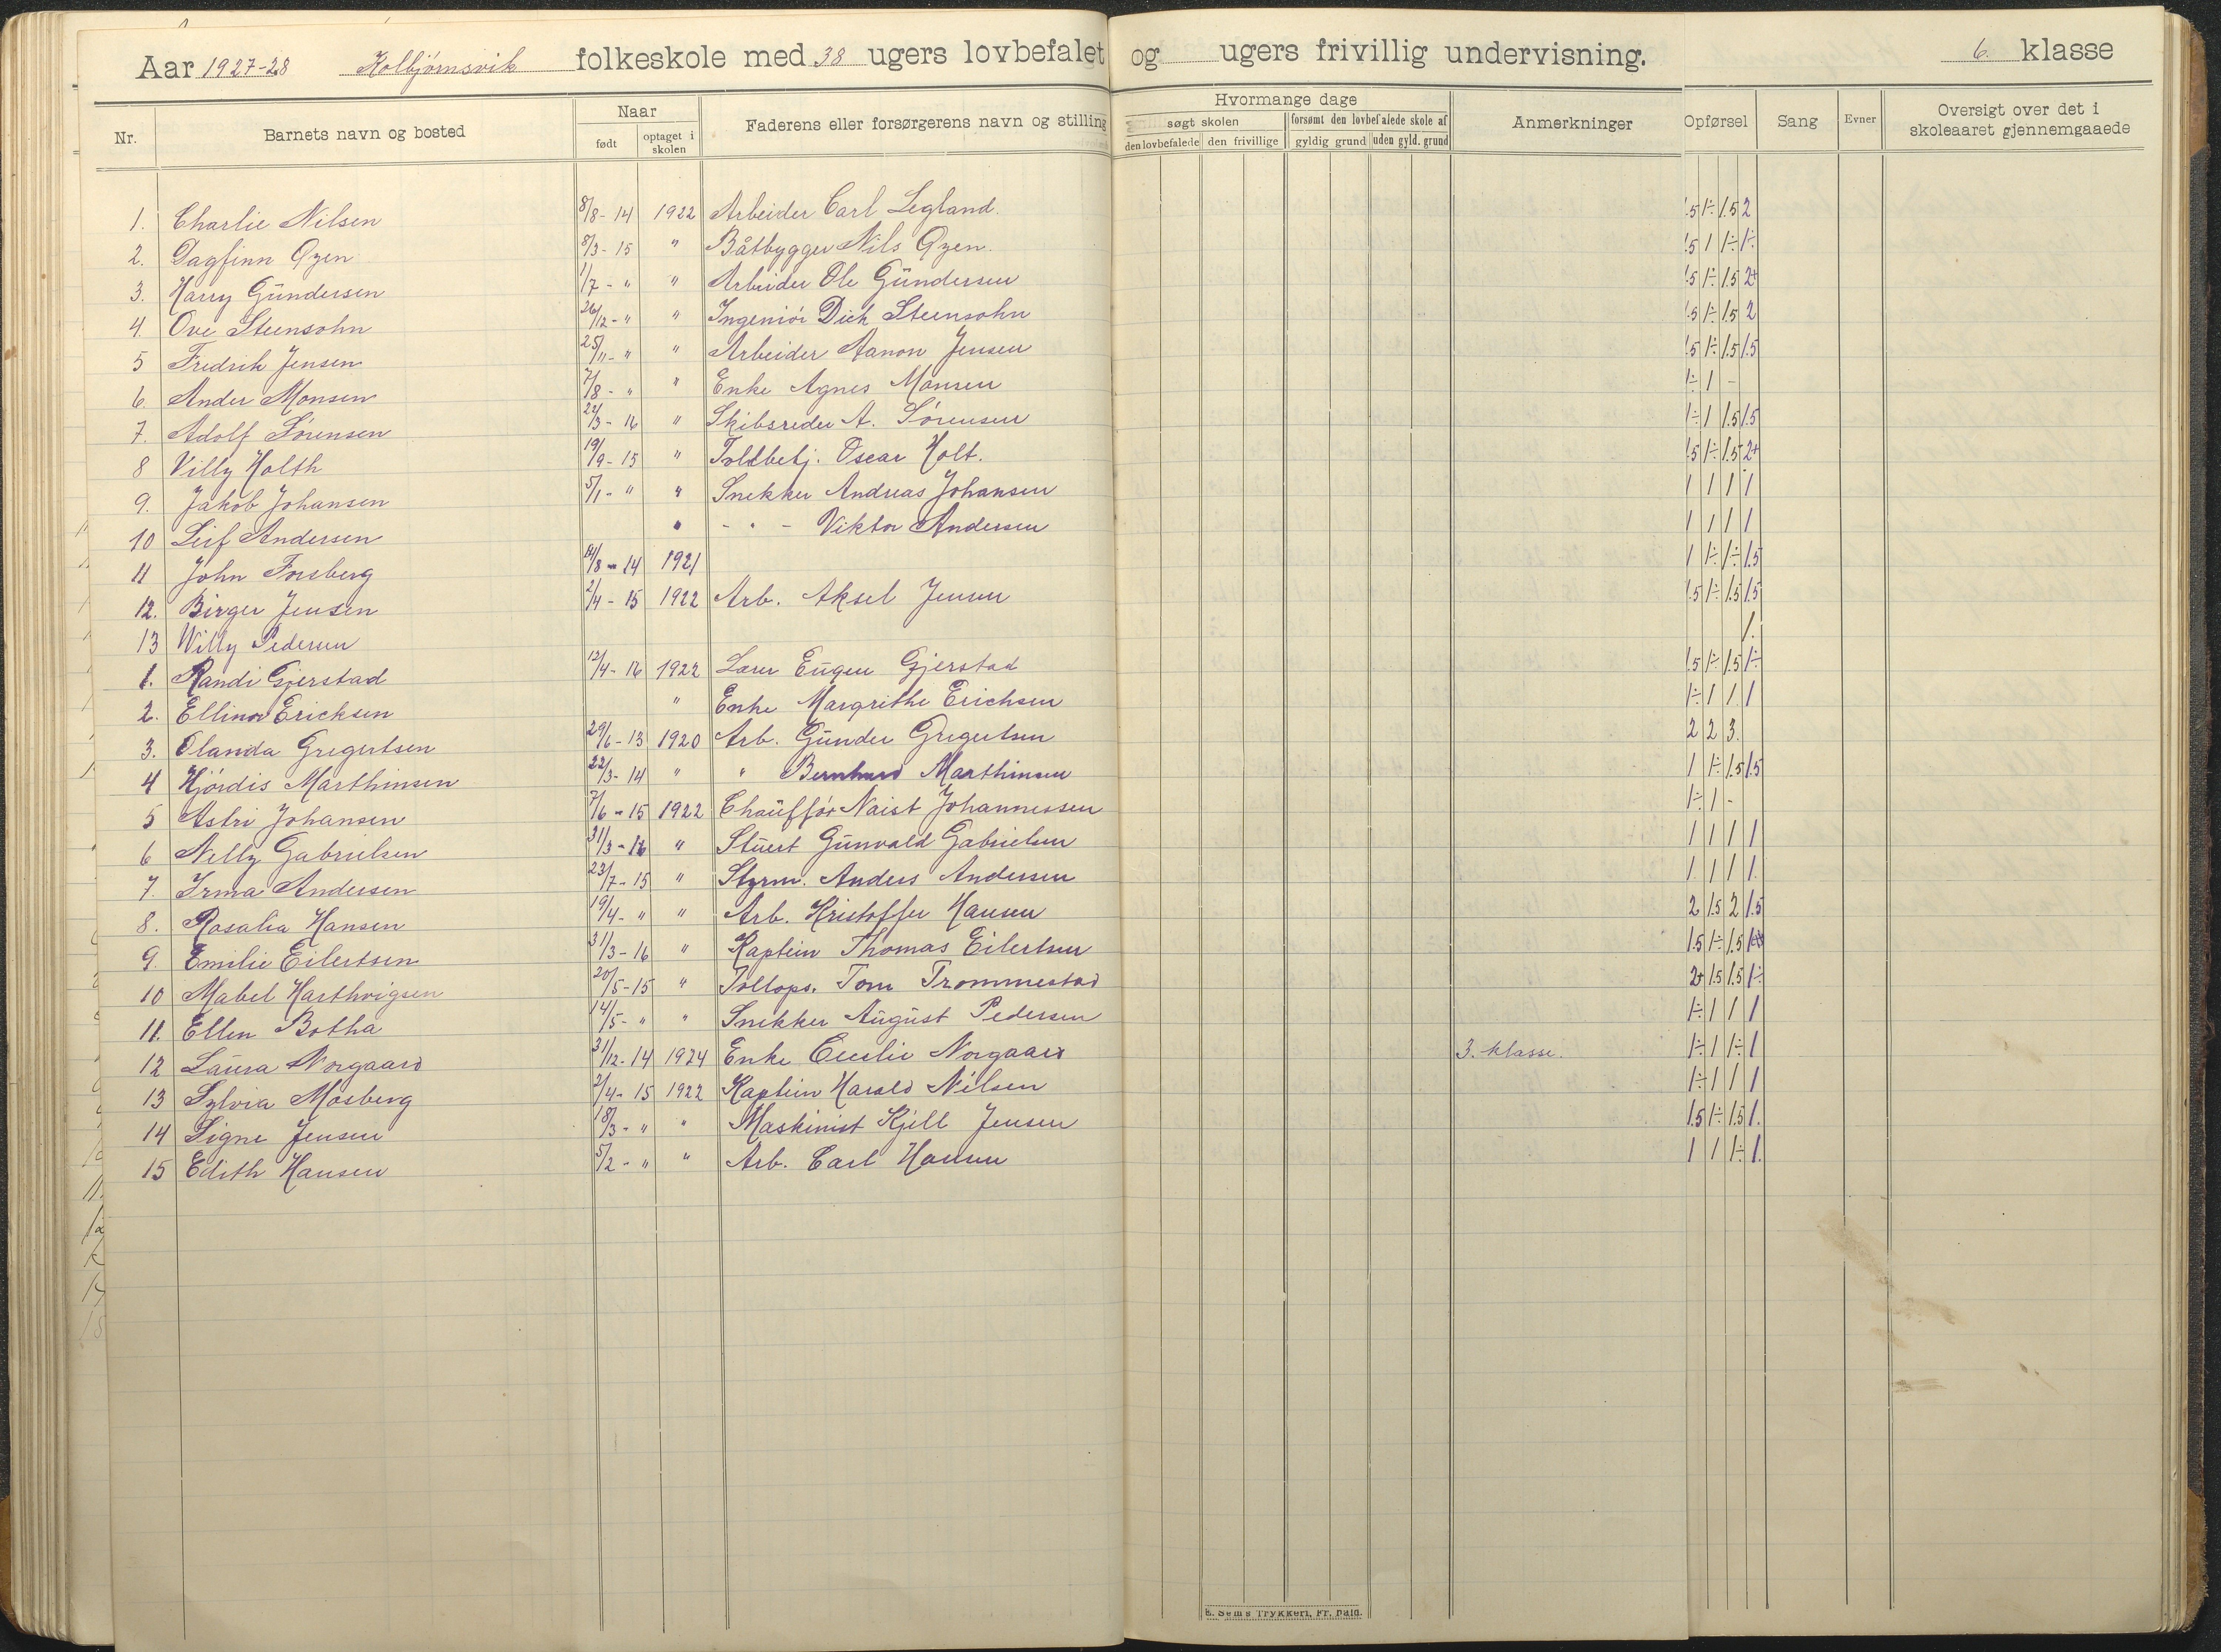 Aar 1927-28 Kolbjørnsvik folkeskole med 38 ugers lovbefalet og ugers frivillig undervisning. 6. klasse
Nr. Barnets navn og bosted Naar født optaget i skolen Faderens eller forsørgerens navn og stilling Hvormange dage søgt skolen den lovbefalede den frivillige forsømt den lovbefalede skole af gyldig grund uden gyld. grund Anmerkninger Opførsel Sang Evner Oversigt over det i skoleaaret gjennemgaaede
1. Charlie Nilsen 8/8-14 1922 Arbeider Carl Legland. 1.5 1÷ 1.5 2
2. Dagfinn Øyen 8/3-15 " Båtbygger Nils Øyen. 1.5 1 1÷ 1÷
3. Harry Gundersen 1/7-" " Arbeider Ole Gundersen 1.5 1÷ 1.5 2+
4. Ove Steensohn 26/12-" " Ingeniør Dick Steensohn 1.5 1÷ 1.5 2
5 Fredrik Jensen 25/11-" " Arbeider Aanon Jensen 1.5 1÷ 1.5 1.5
6. Ander Monsen 7/8-" " Enke Agnes Monsen 1÷ 1 -
7. Adolf Sørensen 22/3-16 " Skibsreder A. Sørensen 1÷ 1 1.5 1.5
8 Villy Holth 19/9-15 " Toldbetj. Oscar Holt. 1.5 1÷ 1.5 2+
9. Jakob Johansen 5/1-" " Snekker Andreas Johansen 1 1 1 1
10 Leif Andersen " - " - Viktor Andersen 1 1 1 1
11 John Forsberg 14/8-14 1921 1 1÷ 1÷ 1.5
12. Birger Jensen 2/4-15 1922 Arb. Aksel Jensen 1.5 1÷ 1.5 1.5
13 Willy Pedersen 1.
1. Randi Gjerstad 12/4-16 1922 Lærer Eugen Gjerstad 1.5 1÷ 1.5 1÷
2. Ellinor Ericksen " Enke Margrithe Erichsen 1÷ 1 1 1
3. Olanda Gregertsen 29/6-13 1920 Arb. Gunder Gregertsen 2 2 3.
4 Hjørdis Marthinsen 22/3-14 " " Bernhard Marthinsen 1 1÷ 1.5 1.5
5 Astri Johansen 7/6-15 1922 Chauffør Naist Johannessen 1÷ 1 -
6 Nelly Gabrielsen 31/3-16 " Stuert Gunvald Gabrielsen 1 1 1 1
7. Irma Andersen 23/7-15 " Styrm. Anders Andersen 1. 1 1 1.
8. Rosalia Hansen 19/4-" " Arb. Kristoffer Hansen 2 1.5 2 1.5
9. Emilie Eilertsen 31/3-16 " Kaptein Thomas Eilertsen 1.5 1÷ 1.5
10 Mabel Harthvigsen 20/5-15 " Tollops. Tom Trommestad 2+ 1.5 1.5 1÷
11. Ellen Botha 14/5-" " Snekker August Pedersen 1÷ 1 1 1
12 Laura Norgaard 31/12-14 1924 Enke Cecilie Norgaard 3. klasse. 1÷ 1 1÷ 1
13 Sylvia Mosberg 2/4-15 1922 Kaptein Harald Nilsen 1÷ 1 1 1
14 Signe Jensen 18/3-" " Maskinist Kjell Jensen 1.5 1÷ 1.5 1.
15 Edith Hansen 5/2-" " Arb. Carl Hansen 1 1 1÷ 1.
E. Sems Trykkeri, Fr. hald.